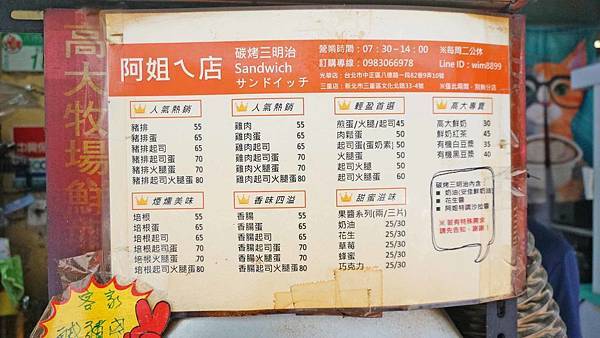 高大牧場鮮
阿姐ㄟ店
碳烤三明治
Sandwich
サンドイッチ
營業時間：07：30－14：00
訂購專線：0983066978
※每周二公休
Line ID：wim8899
光華店：台北市中正區八德路一段82巷9弄10號
三重店：新北市三重區文化北路33-4號
人氣熱銷
豬排 55
豬排蛋 65
豬排起司 65
豬排起司蛋 70
豬排火腿蛋 70
豬排起司火腿蛋80
人氣熱銷
雞肉 55
雞肉蛋 65
雞肉起司 65
雞肉起司蛋 70
雞肉火腿蛋 70
雞肉起司火腿蛋80
輕盈首選
煎蛋/火腿/起司45
肉鬆蛋 50
起司蛋(蛋奶素) 50
火腿蛋 50
起司火腿 50
起司火腿蛋 60
高大專賣
高大鮮奶 30
鮮奶紅茶 45
有機白豆漿 35
有機黑豆漿 40
煙燻美味
培根 55
培根蛋 65
培根起司 65
培根起司蛋 70
培根火腿蛋 70
培根起司火腿蛋80
香味四溢
香腸 55
香腸蛋 65
香腸起司 65
香腸起司蛋 70
香腸火腿蛋 70
香腸起司火腿蛋80
甜蜜滋味
果醬系列(兩/三片)
奶油 25/30
花生 25/30
草莓 25/30
蜂蜜 25/30
巧克力 25/30
碳烤三明治內含：
奶油(安佳鮮奶油)
花生醬
阿姐特調沙拉醬
※若有特殊需求
請先告知，謝謝！
客家